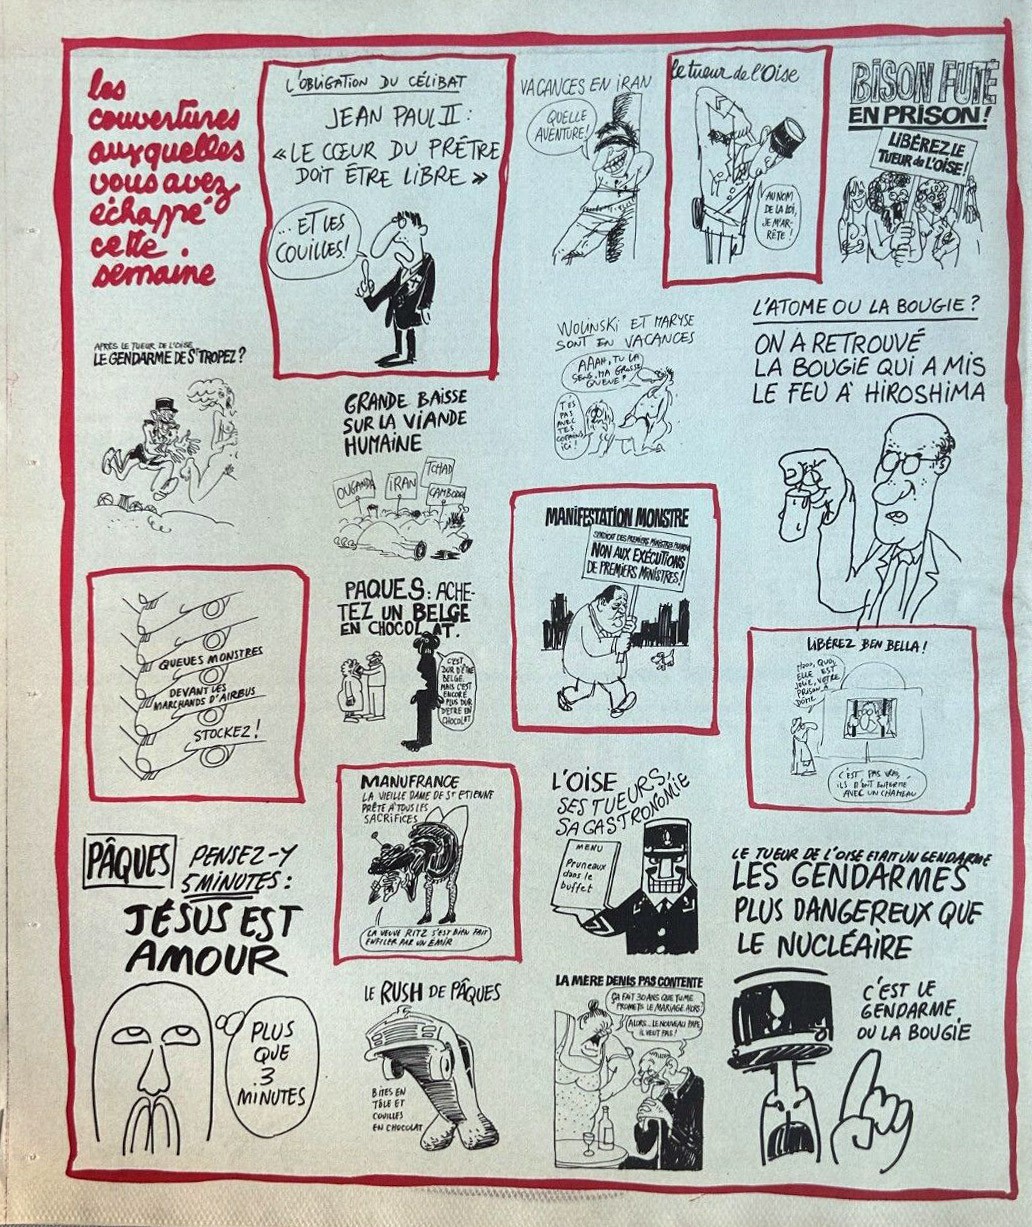 les
couvertures
auxquelles
vous avez
échappé
cette
semaine
L'OBLIGATION DU CÉLIBAT
JEAN PAUL II :
« LE CŒUR DU PRÊTRE
DOIT ÊTRE LIBRE »
... ET LES
COUILLES!
VACANCES EN IRAN
QUELLE
AVENTURE!
le tueur de l'Oise
AU NOM
DE LA LOI,
JE M'AR-
RÊTE !
BISON FUTÉ
EN PRISON!
LIBÉREZ LE
TUEUR DE L'OISE!
APRÈS LE TUEUR DE L'OISE
LE GENDARME DE St TROPEZ?
GRANDE BAISSE
SUR LA VIANDE
HUMAINE
OUGANDA
IRAN
TCHAD
CAMBODGE
WOLINSKI ET MARYSE
SONT EN VACANCES
AAAH, TU LA
SENS, MA GROSSE
QUEUE?
T'ES
PAS
AVEC
TES
COPAINS
ICI!
L'ATOME OU LA BOUGIE?
ON A RETROUVÉ
LA BOUGIE QUI A MIS
LE FEU À HIROSHIMA
QUEUES MONSTRES
DEVANT LES
MARCHANDS D'AIRBUS
STOCKEZ!
PAQUES: ACHE-
TEZ UN BELGE
EN CHOCOLAT.
C'EST
DUR D'ÊTRE
BELGE
MAIS C'EST
ENCORE
PLUS DUR
D'ÊTRE EN
CHOCOLAT
MANIFESTATION MONSTRE
SYNDICAT DES PREMIERS MINISTRES
NON AUX EXÉCUTIONS
DE PREMIERS MINISTRES!
LIBÉREZ BEN BELLA!
QUOI,
ELLE EST
JOLIE, VOTRE
PRISON À
DÔME
C'EST PAS VRAI,
ILS M'ONT ENFERMÉ
AVEC UN CHAMEAU
MANUFRANCE
LA VIEILLE DAME DE St ETIENNE
PRÊTE À TOUS LES
SACRIFICES
LA VEUVE RITZ S'EST BIEN FAIT
ENFILER PAR UN EMIR
L'OISE
SES TUEURS,
SA GASTRONOMIE
MENU
Pruneaux
dans le
buffet
PÂQUES
PENSEZ-Y
5 MINUTES:
JÉSUS EST
AMOUR
PLUS
QUE
3
MINUTES
LE RUSH DE PÂQUES
BITES EN
TÔLE ET
COUILLES
EN CHOCOLAT
LA MÈRE DENIS PAS CONTENTE
ÇA FAIT 30 ANS QUE TU ME
PROMETS LE MARIAGE ALORS?
ALORS... LE NOUVEAU PAPE
IL VEUT PAS!
LE TUEUR DE L'OISE ETAIT UN GENDARME
LES GENDARMES
PLUS DANGEREUX QUE
LE NUCLÉAIRE
C'EST LE
GENDARME
OU LA BOUGIE